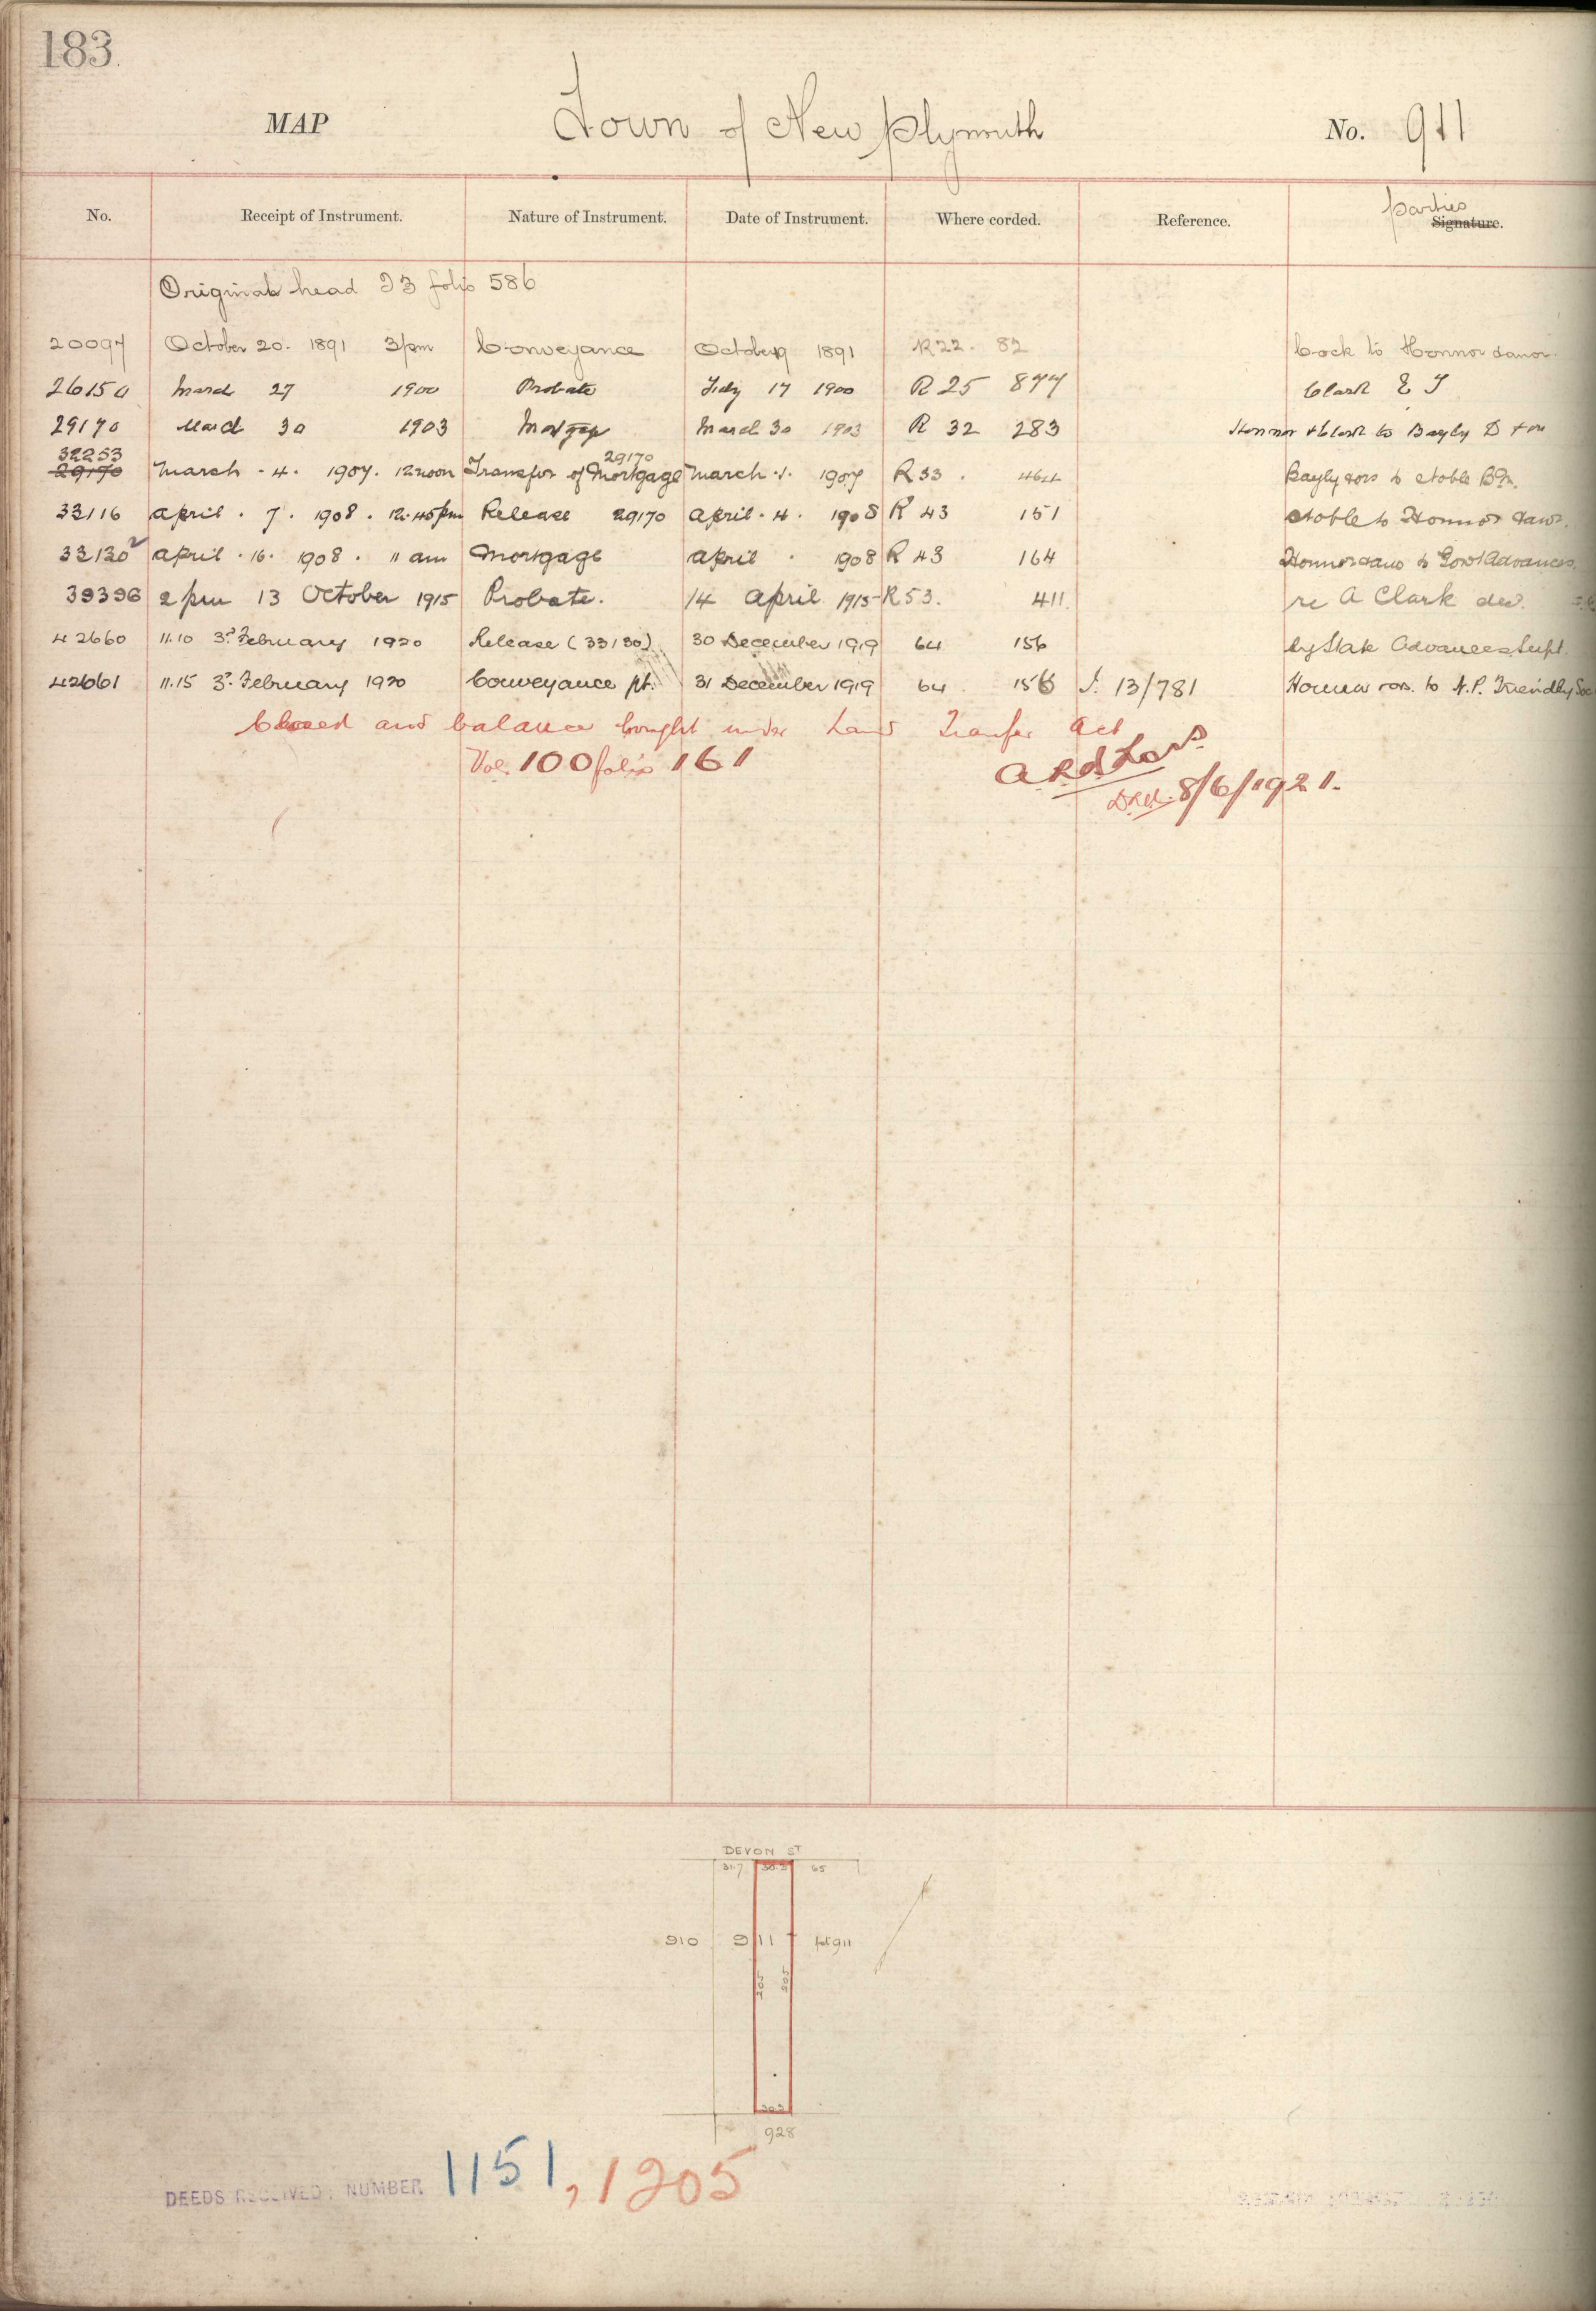 183.
MAP Town of New Plymouth No. 911
No. Receipt of Instrument. Nature of Instrument. Date of Instrument. Where corded. Reference. parties Signature.
Original head I3 folio 586
20097 October 20. 1891 3pm Conveyance October 19 1891 R22. 82 Cock to Honnor &anor.
26150 March 27 1900 Probate July 17 1900 R 25 877 Clark E J
29170 March 30 1903 Mortgage March 30 1903 R 32 283 Honnor & Clark to Bayly D & or
32253
29170 March . 4. 1907. 12 noon Transfer of Mortgage 29170 March . 1. 1907 R33 . 464 Bayly &ors to Noble
33116 April . 7. 1908 . 12.45pm Release 29170 April . 4. 1908 R 43 151 Noble to Honnor &anor.
33130 April . 16. 1908 . 11 am Mortgage April . 1908 R 43 164 Honnor &ano to Govt Advances.
39396 2 pm 13 October 1915 Probate. 14 April 1915 R53. 411. re A Clark decd.
42660 11.10 3rd February 1920 Release (33130) 30 December 1919 64 156 by State Advances Supt.
42661 11.15 3rd February 1920 Conveyance pt. 31 December 1919 64 156 I. 13/781 Honnor &ors. to N.P. Friendly Soc
Closed and balance brought under Land Transfer Act
Vol. 100 folio 161
D.R.D. 8/6/1921.
DEVON ST
31.7 30.3 65
910 911 pt 911
205 205
30.3
928
DEEDS RECEIVED: NUMBER 1151, 1205